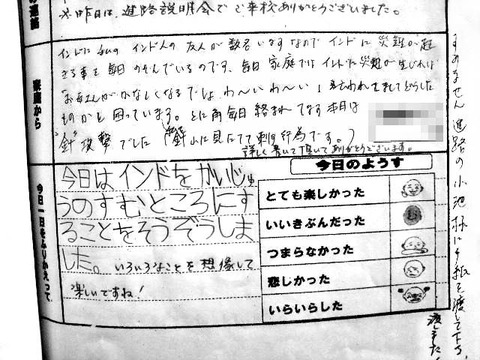 ※昨日は、進路説明会でご来校ありがとうございました。
家庭から
インドに私のインド人の友人が数名いますなのでインドに災難が起
きる事を毎日のぞんでいるのです。毎日家庭ではインドに災難が生じれば
お母さんがかなしくなるではわ〜いわ〜い!と言われまして
ものかと困っています。とに角毎日
攻撃でした
行為です。)
詳しく書いて頂いてありがとうございます。
今日一日をふりかえって
今日はインドをかいじゅ
うのすむところにす
ることをそうぞうしま
した。いろいろなことを想像して
楽しいですね!
今日のようす
とても楽しかった
いいきぶんだった
つまらなかった
悲しかった
いらいらした
すみません進路の小池様に手紙を渡して下さい
渡しました